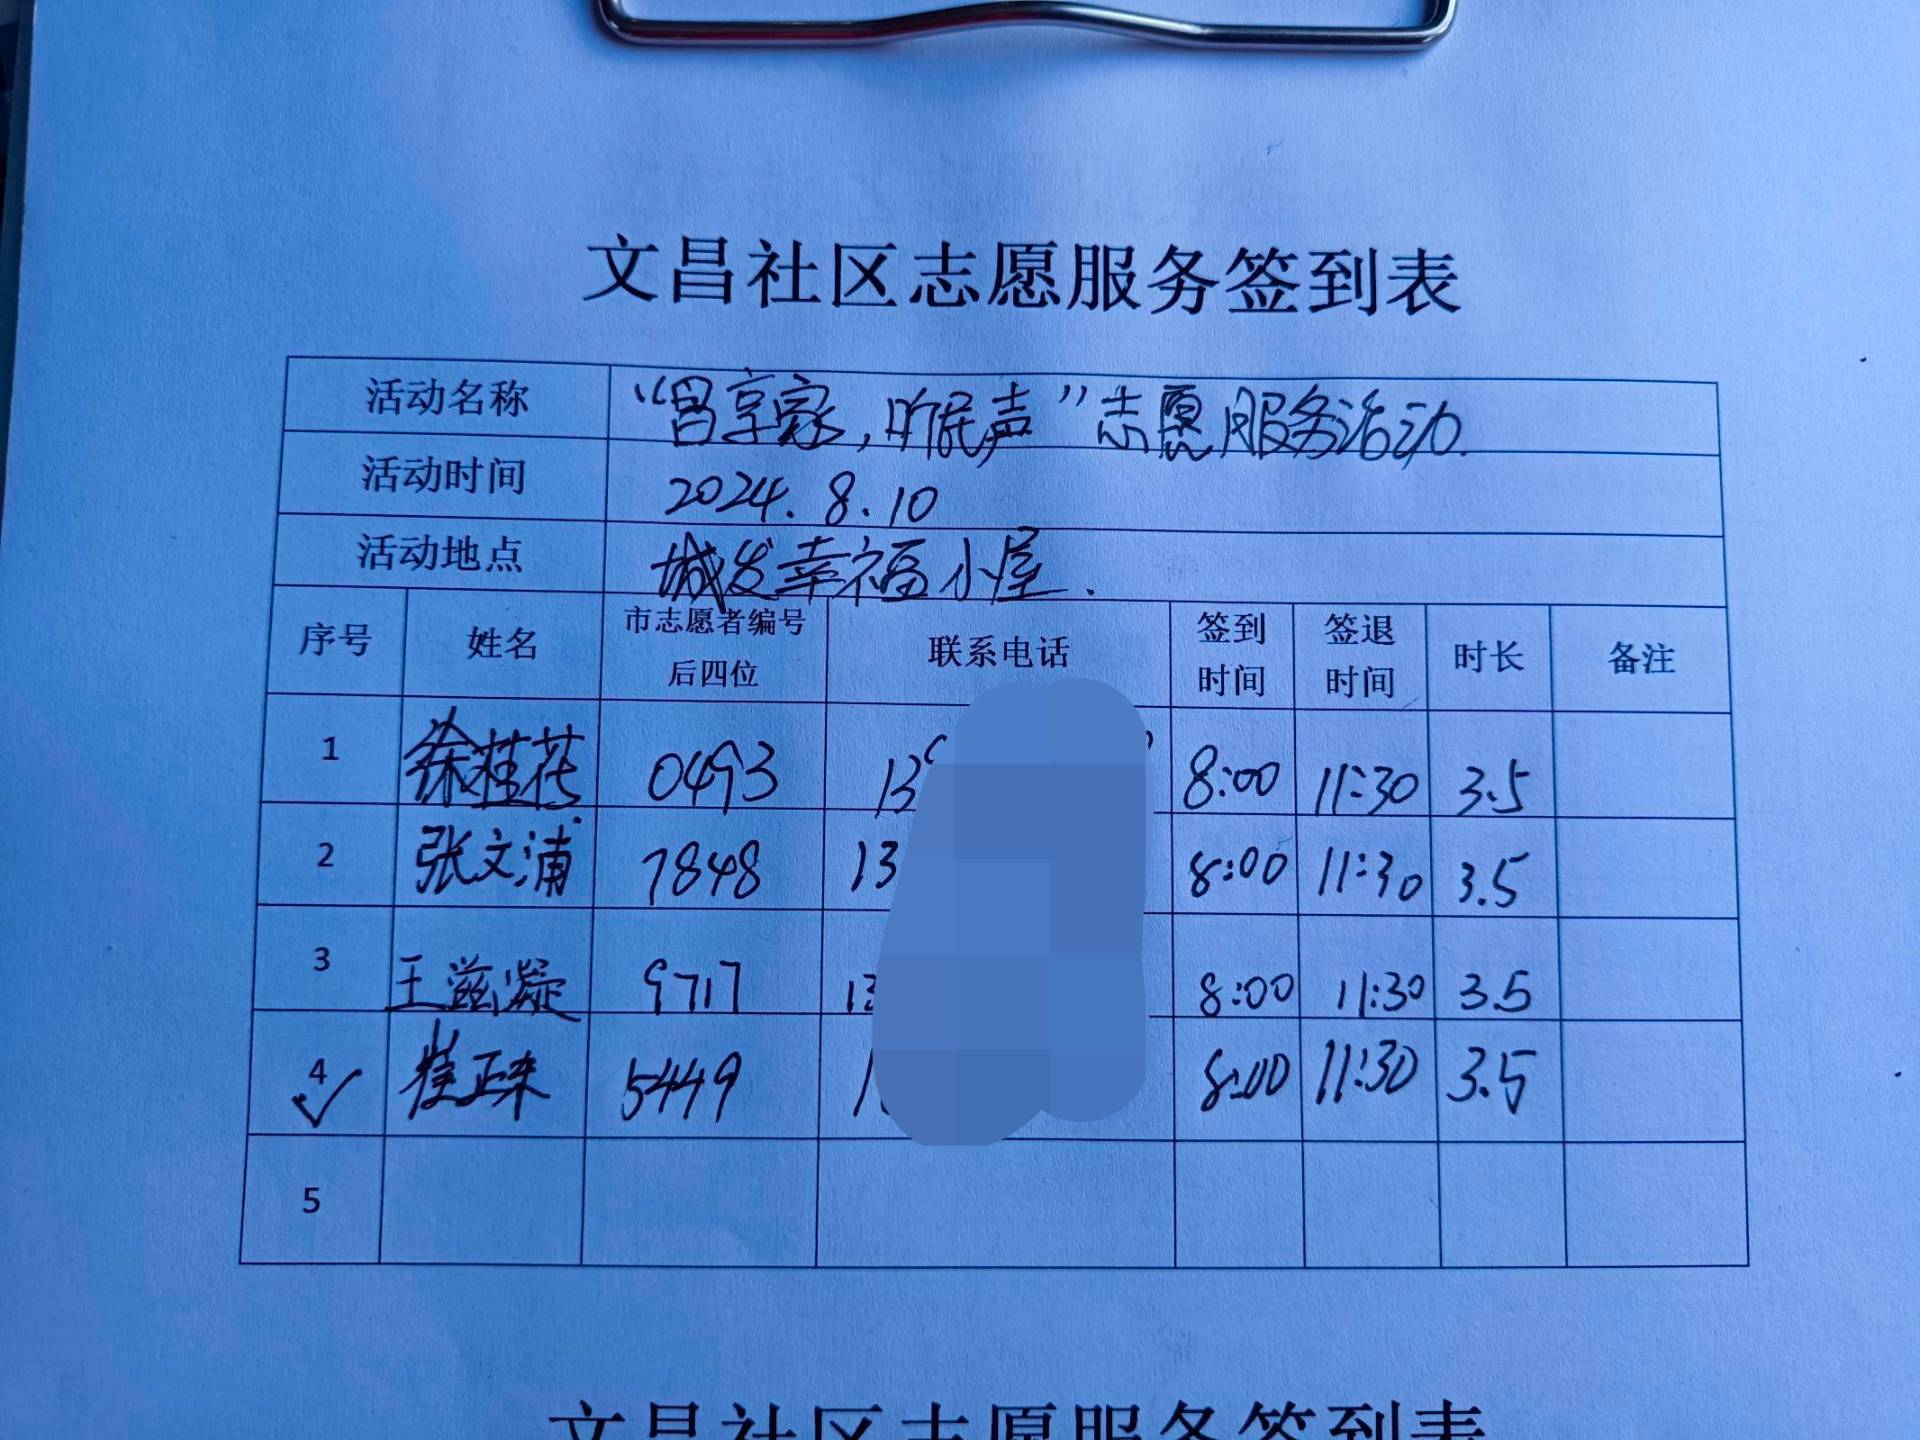 文昌社区志愿服务签到表
活动名称 “昌享家,听民声”志愿服务活动.
活动时间 2024.8.10
活动地点 城发幸福小屋.
序号 姓名 市志愿者编号后四位 联系电话 签到时间 签退时间 时长 备注
1 徐桂花 0493 13 8:00 11:30 3.5
2 张文浦 7848 13 8:00 11:30 3.5
3 王滋凝 9717 13 8:00 11:30 3.5
4 ✓ 5449 1 8:00 11:30 3.5
5
文昌社区志愿服务签到表